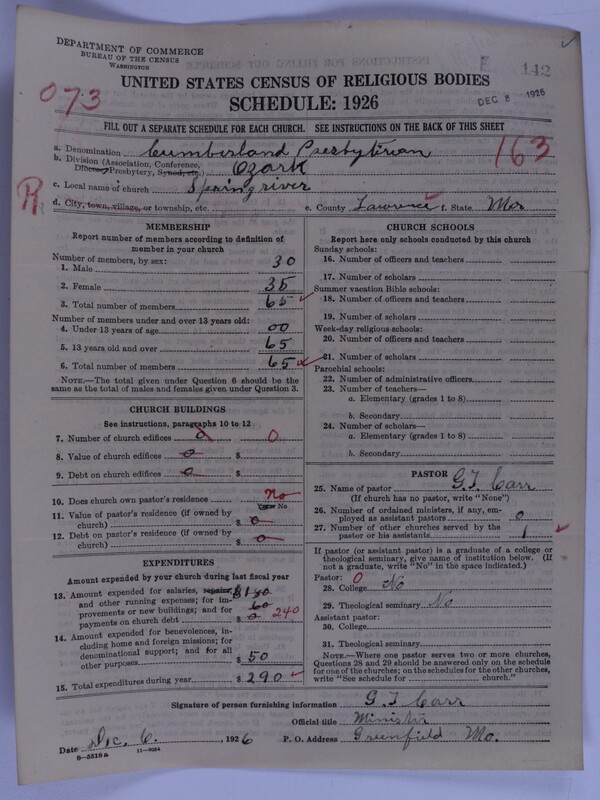 DEPARTMENT OF COMMERCE
BUREAU OF THE CENSUS
WASHINGTON
142
DEC 8 1926
UNITED STATES CENSUS OF RELIGIOUS BODIES
SCHEDULE: 1926
073
FILL OUT A SEPARATE SCHEDULE FOR EACH CHURCH. SEE INSTRUCTIONS ON THE BACK OF THIS SHEET
a. Denomination Cumberland Presbyterian
163
b. Division (Association, Conference, Diocese, Presbytery, Synod, etc.) Ozark
c. Local name of church Spring river
R
d. City, town, village, or township, etc. e. County Lawrence f. State Mo
MEMBERSHIP
Report number of members according to definition of
member in your church
Number of members, by sex:
1. Male 30
2. Female 35
3. Total number of members 65
Number of members under and over 13 years old:
4. Under 13 years of age 00
5. 13 years old and over 65
6. Total number of members 65
NOTE.—The total given under Question 6 should be
same as the total of males and females given under Question 3.
CHURCH BUILDINGS
See instructions, paragraphs 10 to 12
7. Number of church edifices 0 0
8. Value of church edifices 0 $
9. Debt on church edifices 0 $
10. Does church own pastor's residence No
Yes or No
11. Value of pastor's residence (if owned by
church) $ 0
12. Debt on pastor's residence (if owned by
church) $ 0
EXPENDITURES
Amount expended by your church during last fiscal year
13. Amount expended for salaries, repairs, $180
and other running expenses; for im- 60
provements or new buildings; and for
payments on church debt $ 0 240
14. Amount expended for benevolences, in-
cluding home and foreign missions; for
denominational support; and for all
other purposes $ 50
15. Total expenditures during year $ 290
CHURCH SCHOOLS
Report here only schools conducted by this church
Sunday schools:
16. Number of officers and teachers
17. Number of scholars
Summer vacation Bible schools:
18. Number of officers and teachers
19. Number of scholars
Week-day religious schools:
20. Number of officers and teachers
21. Number of scholars
Parochial schools:
22. Number of administrative officers
23. Number of teachers—
a. Elementary (grades 1 to 8)
b. Secondary
24. Number of scholars—
a. Elementary (grades 1 to 8)
b. Secondary
PASTOR
25. Name of pastor G. T. Carr
(If church has no pastor, write "None")
26. Number of ordained ministers, if any, em-
ployed as assistant pastors 0
27. Number of other churches served by the
pastor or his assistants 1
If pastor (or assistant pastor) is a graduate of a college or
theological seminary, give name of institution below. (If
not a graduate, write "No" in the space indicated.)
Pastor: 0
28. College No
29. Theological seminary No
Assistant pastor:
30. College
31. Theological seminary
NOTE.—Where one pastor serves two or more churches,
Questions 28 and 29 should be answered only on the schedule
for one of the churches; on the schedules for the other churches,
write "See schedule for church."
Signature of person furnishing information G. T. Carr
Official title Minister
Date Dec. 6, 1926 P. O. Address Greenfield Mo.
8—5518a 11—9084